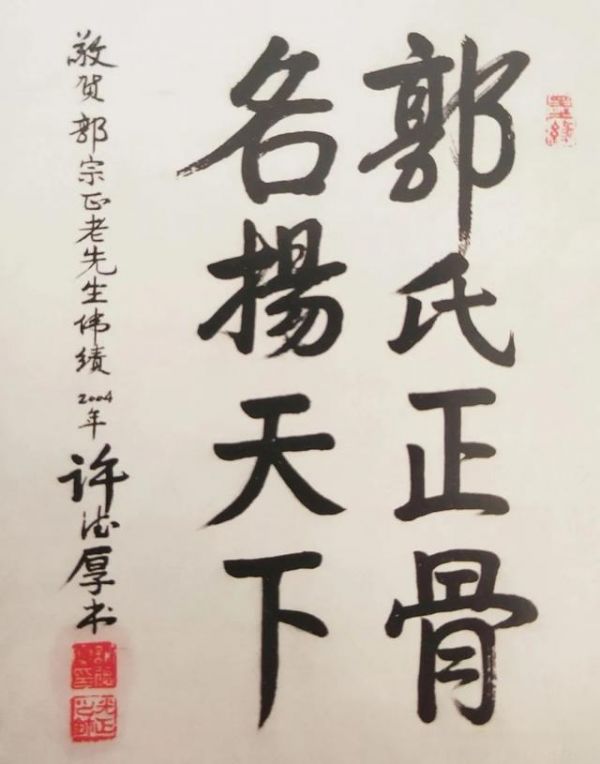 郭氏正骨
名揚天下
敬贺郭宗正老先生伟绩 2004年 许德厚书